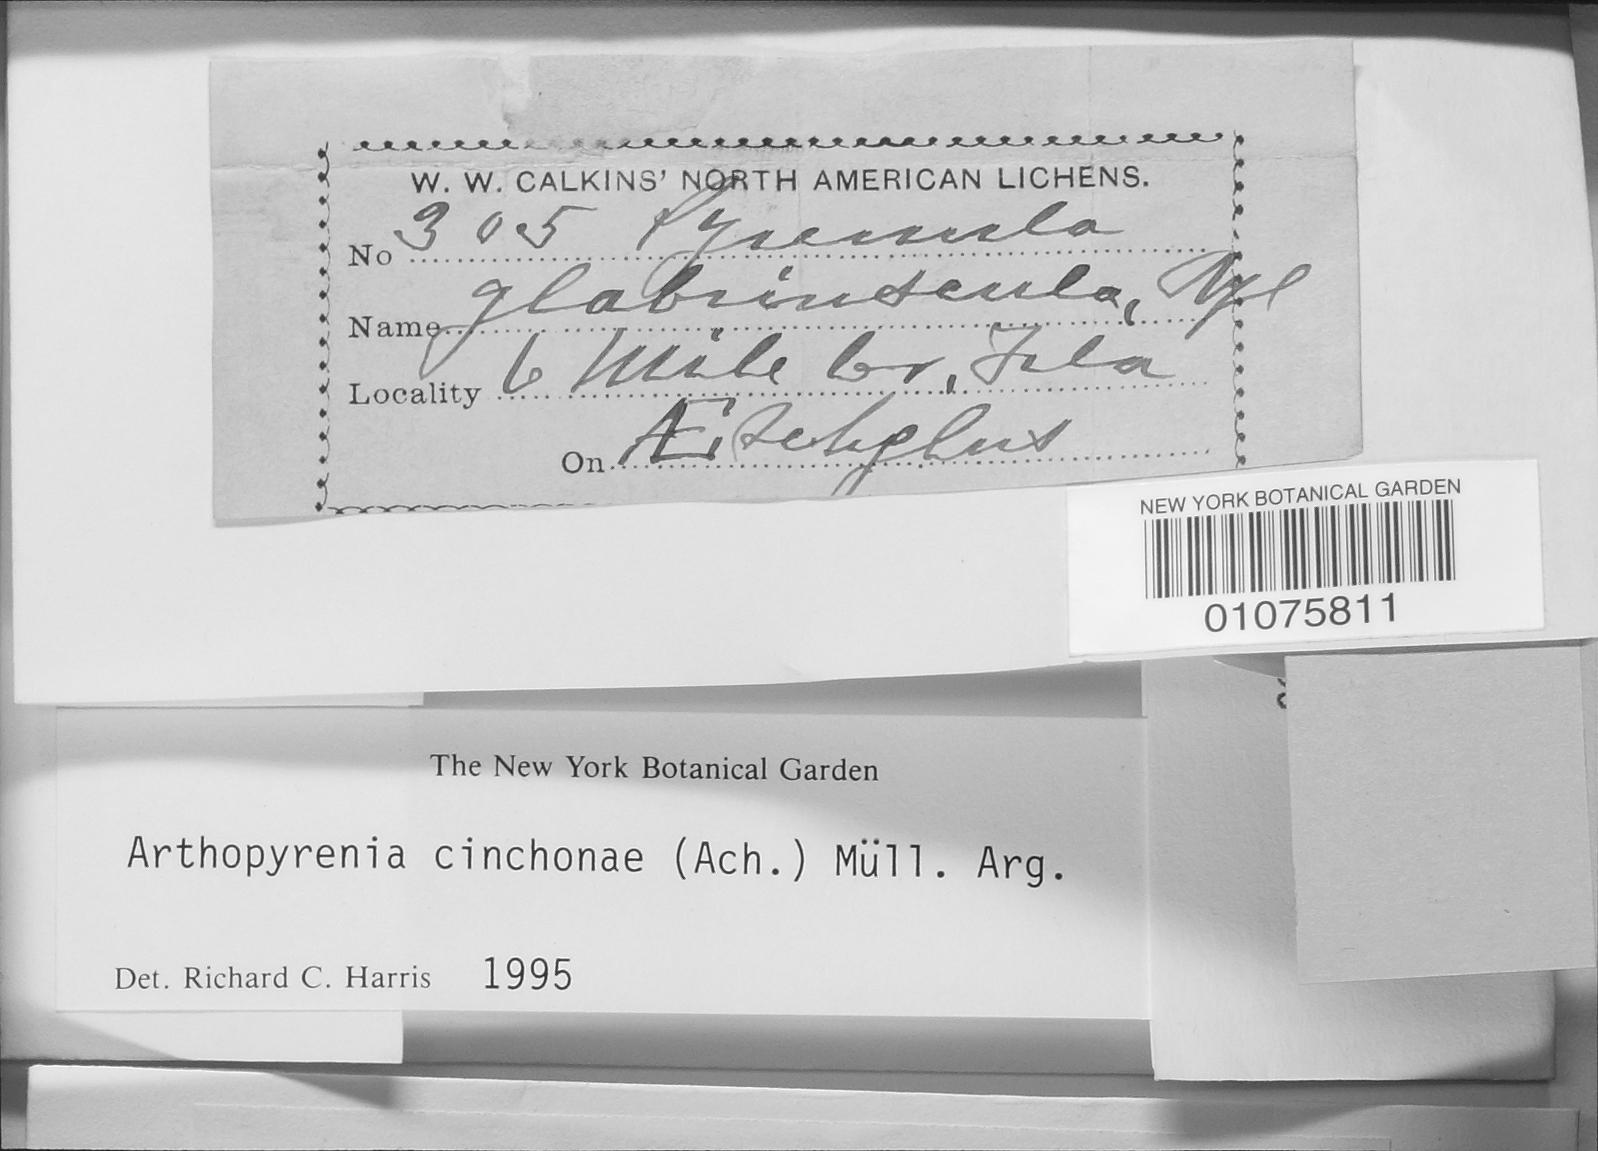 W. W. CALKINS' NORTH AMERICAN LICHENS.
No 305 Pyrenula
Name glabriuscula, Nyl
Locality 6 Mile Cr, Fla
On
NEW YORK BOTANICAL GARDEN
01075811
The New York Botanical Garden
Arthopyrenia cinchonae (Ach.) Müll. Arg.
Det. Richard C. Harris 1995